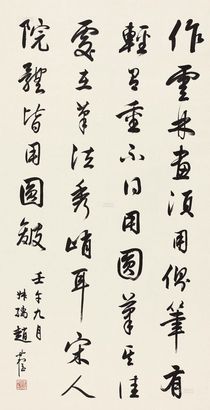 作雲林畫須用側筆有
輕有重不得用圓筆其佳
處在筆法秀峭耳宋人
院體皆用圓皴
壬午九月
叔孺趙